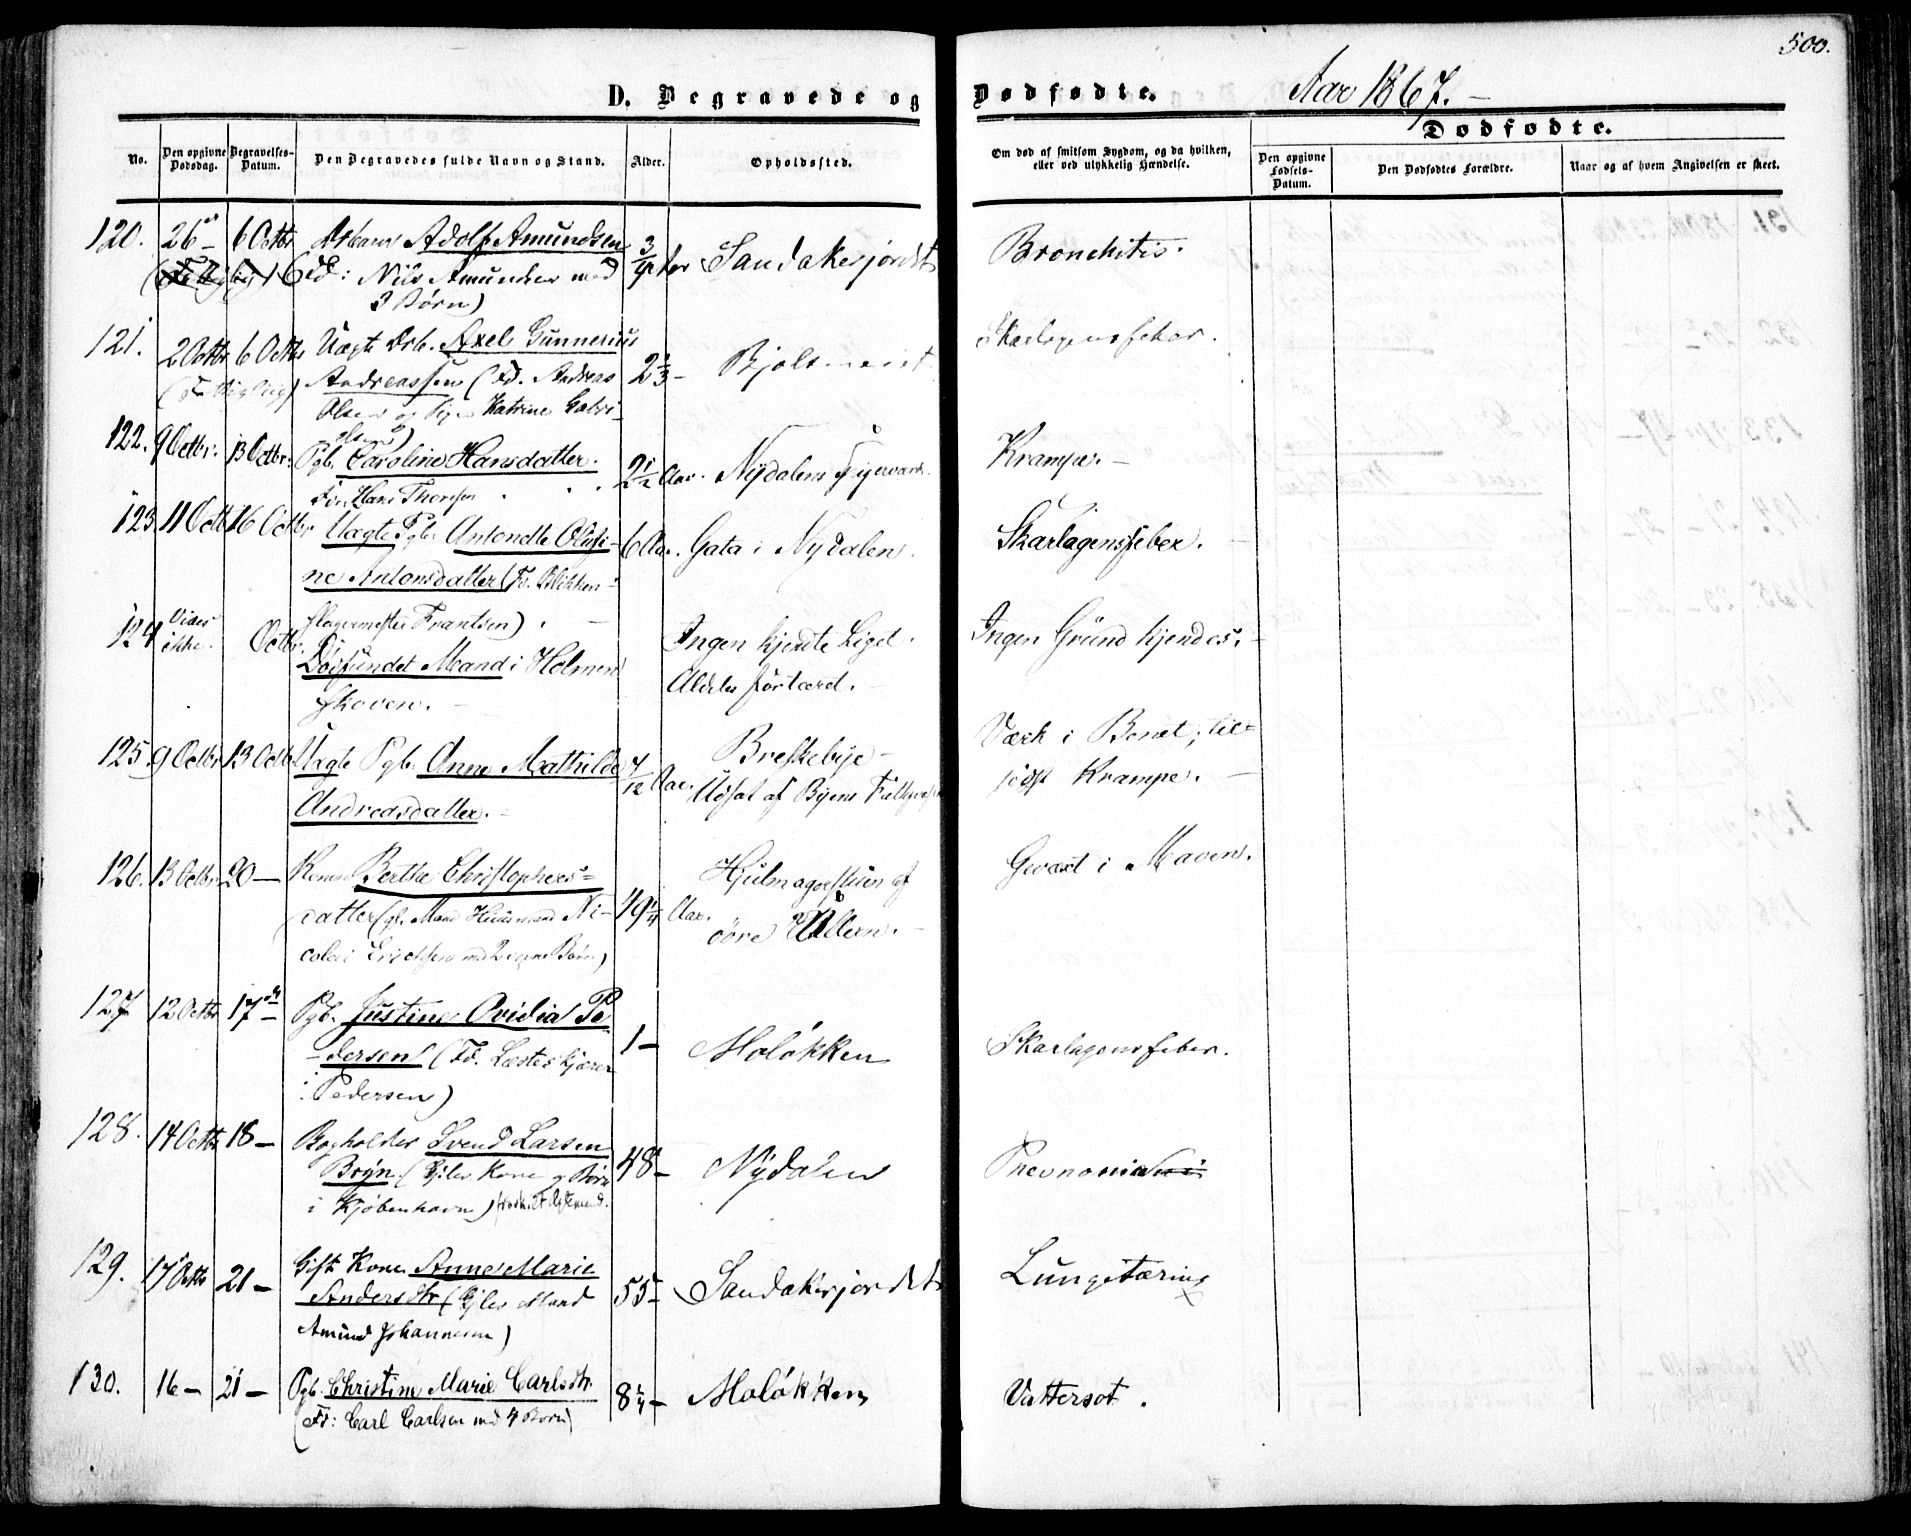 500.
D. Begravede og Dødfødte. Aar 1867.
Dødfødte.
No.
Den opgivne Dødsdag.
Begravelses-Datum.
Den Begravedes fulde Navn og Stand.
Alder.
Opholdssted.
Om død af smitsom Sygdom, og da hvilken, eller ved ulykkelig Hændelse.
Den opgivne Fødsels-Datum.
Den Dødfødtes Forældre.
Naar og af hvem Angivelsen er skeet.
120. 26 6 Octbr Adolf Amundsen 3/4 Aar Sandakerjordet Bronchitis.
Fd: Nils Amundsen med
3 Børn)
121. 2 Octbr 6 Octbr Uægte Drb. Axel Gunnerius 2 1/3 – Skarlagensfeber.
Andreassen (Fd. Andreas
Olsen og Pige Katrine Gabri-
elsen)
122. 9 Octbr. 13 Octbr. Pgb. Caroline Hansdatter. 2 1/2 Aar. Nydalens Krampe. –
Hans Thomsen
123. 11 Octb 16 Octbr Uægte Pgb. Antonette Olufi- 6 Aar. Gata i Nydalen. Skarlagensfeber.
ne Antonsdatter (Fd. Blikken-
slagermester Frantsen)
124 Vides ikke. Octbr. Døfundet Mand i Holmen Ingen kjendte Liget. Ingen Grund kjendes. –
skoven. Aldeles fortæret. –
125. 9 Octbr 13 Octb Uægte Pgb. Anne Mathilde 7/12 Aar. Breskebye – Værk i Benet; til-
Andreasdatter. Udsat af Byens sidst Krampe. –
126. 13 Octbr 20 – Kone Berthe Christophers= 49 1/4 Aar. Hjulmagerstuen af Gevæxt i Maven.
datter (gf. Mand Huusmand Ni- øvre Ullern. –
colai Erichsen med 2 Børn)
127 12 Octbr 17 – Pgb. Justine Ovidia Pe 1 – Moløkken Skarlagensfeber.
dersen (Fd. Læsteskjærer
Pedersen)
128. 14 Octbr 18 – Bogholder Svend Larsen 48 – Nydalen Pnevnonia
Bryn (Efter. Kone og Børn
i Kjøbenhavn)
129. 17 Octbr 21 – Gift Kone Anne Marie 55 – Sandakerjordet Lungetæring
Andersdtr (Efter. Mand
Amund Johannesen)
130. 16 – 21 – Pgb. Christine Marie Carlsdtr. 8 1/4 – Moløkken Vattersot.
(Fd: Carl Carlsen med 4 Børn)